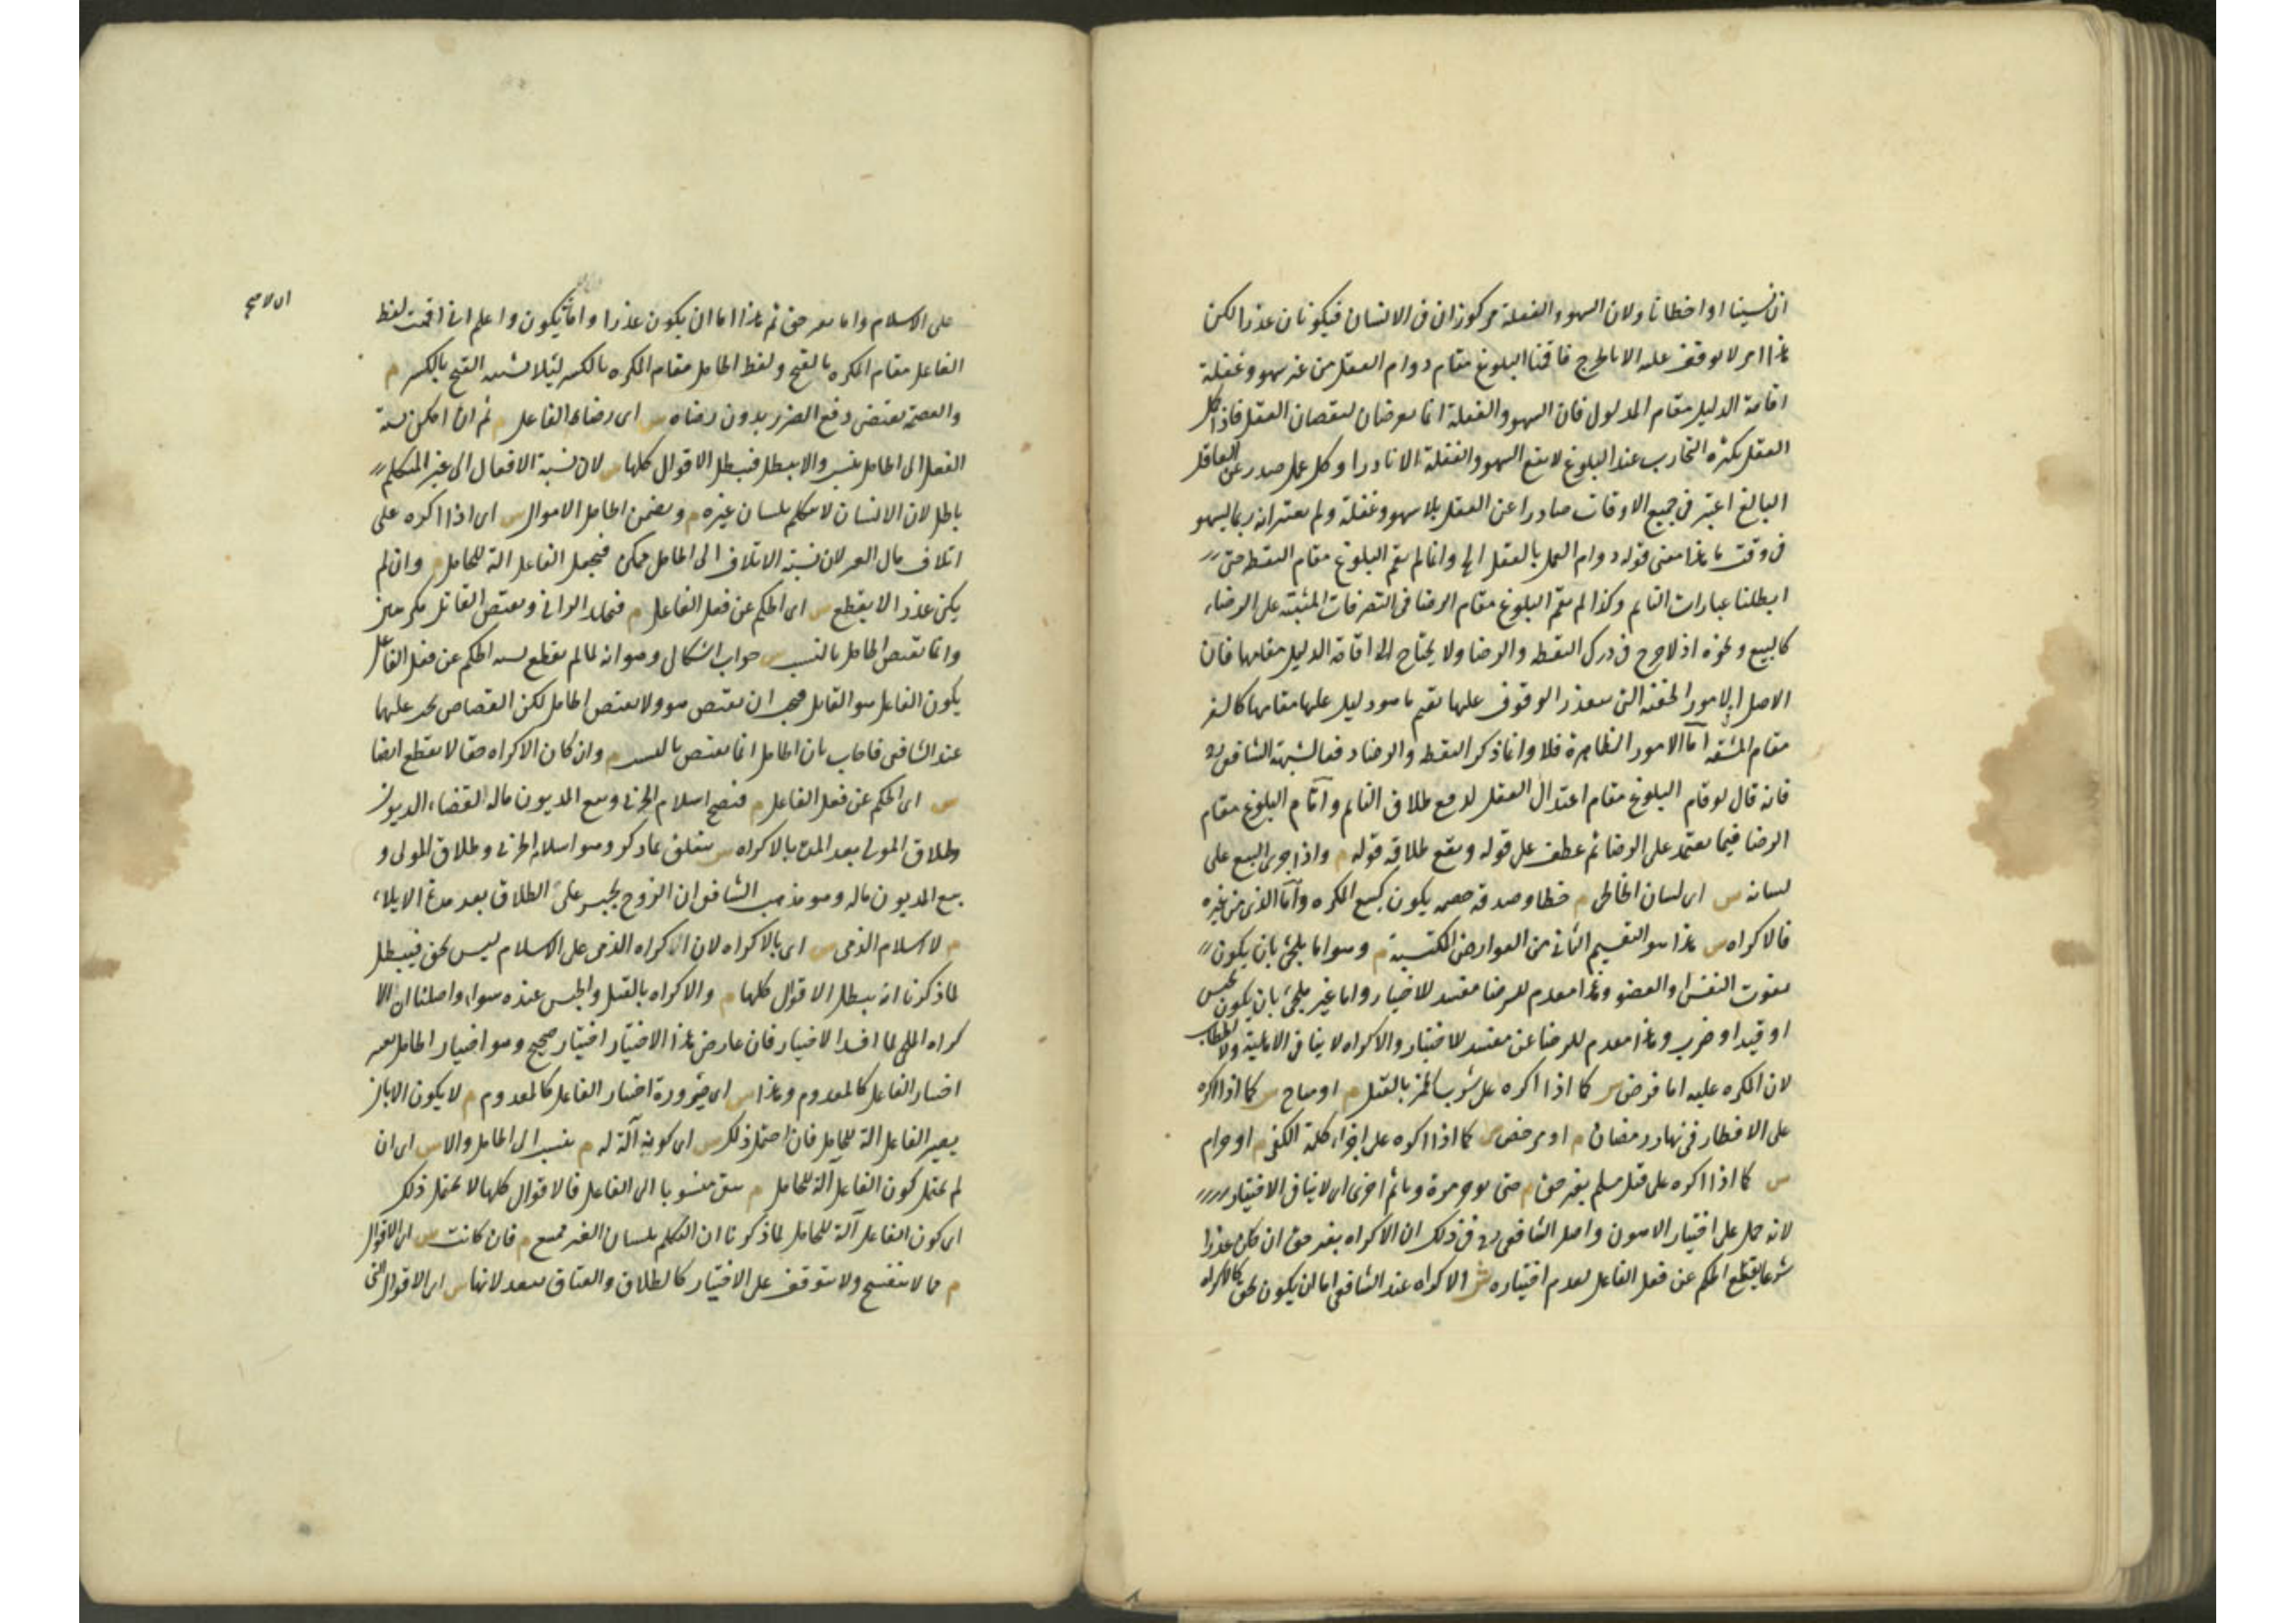 ان نسينا او اخطانا ولان السهو والغفلة مركوزان فى الانسان فيكونان عذرا لكن
هذا امر لا يوقف عليه الا بالحرج فاقمنا البلوغ مقام دوام العقل من غير سهو وغفلة
اقامة الدليل مقام المدلول فان السهو والغفلة انما يعرضان لنقصان العقل فاذا كمل
العقل بكثرة التجارب عند البلوغ لا يقع السهو والغفلة الا نادرا وكل عمل صدر عن العاقل
البالغ اعتبر فى جميع الاوقات صادرا عن العقل بلا سهو وغفلة ولم يعتبر انه ربما يسهو
فى وقت ما هذا معنى قوله دوام العمل بالعقل الخ وانما لم يقم البلوغ مقام اليقظة حتى
ابطلنا عبارات النايم وكذا لم يقم البلوغ مقام الرضا فى التصرفات المبنية على الرضاء
كالبيع ونحوه اذ لا حرج فى درك اليقظة والرضا ولا يحتاج الى اقامة الدليل مقامها فان
الاصل ان الامور الخفية التى يتعذر الوقوف عليها يقيم ما هو دليل عليها مقامها كالسفر
مقام المشقة اما الامور الظاهرة فلا وانما ذكر اليقظة والرضا دفعا لشبهة الشافعى رح
فانه قال لو قام البلوغ مقام اعتدال العقل لوقع طلاق النايم واقام البلوغ مقام
الرضا فيما يعتمد على الرضا ثم عطف على قوله ويقع طلاقه قوله م واذا جرى البيع على
لسانه س اى لسان الخاطى م خطا وصدقه خصمه يكون كبيع المكره واما الذى من غيره
فالاكراه س هذا هو القسم الثانى من العوارض المكتسبة م وهو اما ملجئ بان يكون
بفوت النفس او العضو وهذا معدم للرضا مفسد للاختيار واما غير ملجئ بان يكون بحبس
او قيد او ضرب وهذا معدم للرضا غير مفسد للاختيار والاكراه لا ينافى الاهلية ولا الخطاب
لان المكره عليه اما فرض س كما اذا اكره على شرب الخمر بالقتل م او مباح س كما اذا اكره
على الافطار فى نهار رمضان م او مرخص س كما اذا اكره على اجراء كلمة الكفر م او حرام
س كما اذا اكره على قتل مسلم بغير حق م حتى يوجر مرة وياثم اخرى اى لا ينافى الاختيار
لانه حمل على اختيار الاهون واصل الشافعى رح فى ذلك ان الاكراه بغير حق ان كان عذرا
شرعا يقطع الحكم عن فعل الفاعل لعدم اختياره ش الاكراه عند الشافعى اما ان يكون بحق كالاكراه
على الاسلام واما بغير حق ثم هذا اما ان يكون عذرا واما ان لا يكون واعلم انى اقمت لفظ
ان لا صح
الفاعل مقام المكره بالفتح ولفظ الحامل مقام المكره بالكسر لئلا يشتبه الفتح بالكسر م
والعصمة تقتضى دفع الضرر بدون رضاه س اى رضاء الفاعل م ثم ان امكن نسبة
الفعل الى الحامل ينسب والا يبطل فتبطل الاقوال كلها س لان نسبة الاقوال الى غير المتكلم
باطل لان الانسان لا يتكلم بلسان غيره م ويضمن الحامل الاموال س اى اذا اكره على
اتلاف مال الغير لان نسبة الاتلاف الى الحامل ممكن فيجعل الفاعل الة للحامل م وان لم
يكن عذرا لا يقطع س اى الحكم عن فعل الفاعل م فيحد الزانى ويقتص القاتل مكرهين
وانما يقتص الحامل بالتسبيب س جواب اشكال وهو انه لما لم يقطع نسبة الحكم عن فعل الفاعل
يكون الفاعل هو القاتل فيجب ان يقتص هو ولا يقتص الحامل لكن القصاص يجب عليهما
عند الشافعى فاجاب بان الحامل انما يقتص بالتسبيب م وان كان الاكراه حقا لا يقطع ايضا
س اى الحكم عن فعل الفاعل م فيصح اسلام الحربى وبيع المديون ماله لقضاء الديون
وطلاق المولى بعد المدة بالاكراه س متعلق بما ذكر وهو اسلام الحربى وطلاق المولى و
بيع المديون ماله وهو مذهب الشافعى ان الزوج يجبر على الطلاق بعد مدة الايلاء
م لا اسلام الذمى س اى بالاكراه لان اكراه الذمى على الاسلام ليس بحق فيبطل
لما ذكرنا انه يبطل الاقوال كلها م والاكراه بالقتل والحبس عنده سواء واصلنا ان الا
كراه الملجى لما افسد الاختيار فان عارض هذا الاختيار اختيار صحيح وهو اختيار الحامل يصير
اختيار الفاعل كالمعدوم وهذا س اى صيرورة اختيار الفاعل كالمعدوم م لا يكون الا بان
يصير الفاعل الة للحامل فان احتمل ذلك س اى كونه آلة له م ينسب الى الحامل والا س اى ان
لم يحتمل كون الفاعل آلة للحامل م يبقى منسوبا الى الفاعل فالاقوال كلها لا تحتمل ذلك
اى كون الفاعل آلة للحامل لما ذكرنا ان التكلم بلسان الغير ممتنع م فان كانت س اى الاقوال
م مما لا ينفسخ ولا يتوقف على الاختيار كالطلاق والعتاق ينفذ لانها س اى الاقوال التى